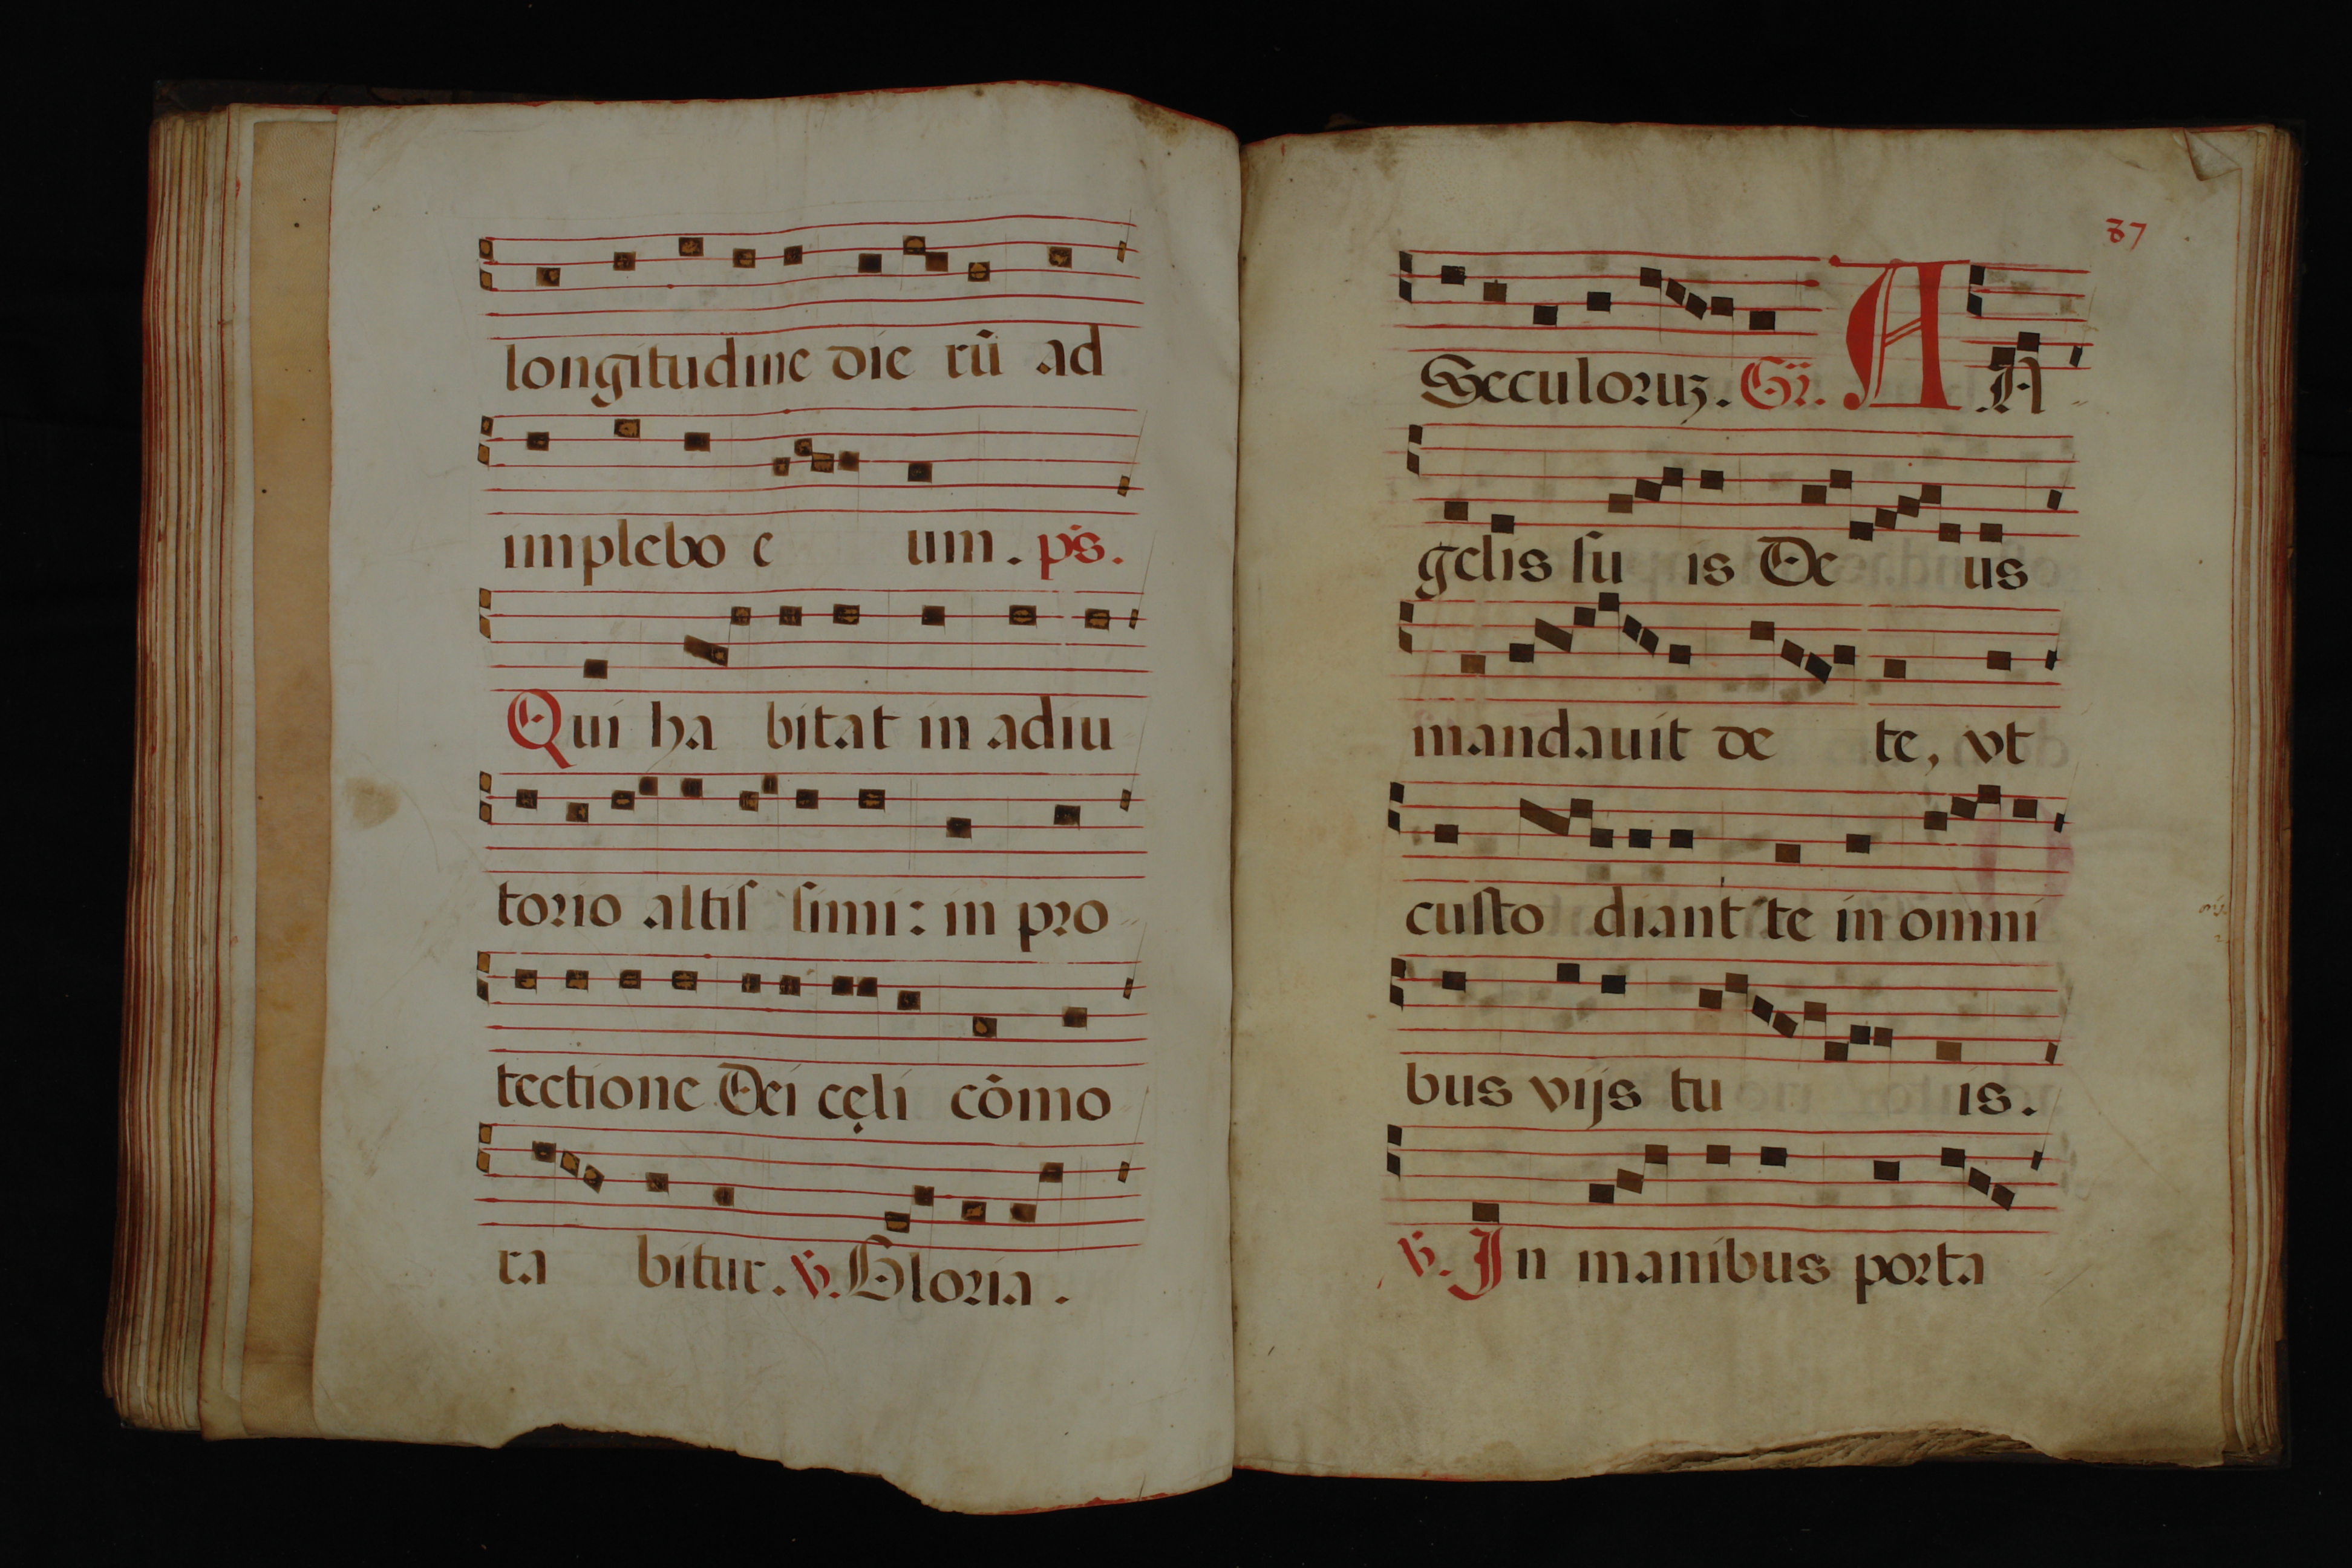 longitudine die rū ad
implebo e um. ps.
Qui ha bitat in adiu
torio altiſ ſimi: in pro
tectione Dei cęli cōmo
ra bitur. ℣. Gloria.
87
Seculoruꝫ. Gr̄. A N
gelis ſu is De us
mandauit de te, vt
cuſto diant te in omni
bus vijs tu is.
℣. In manibus porta